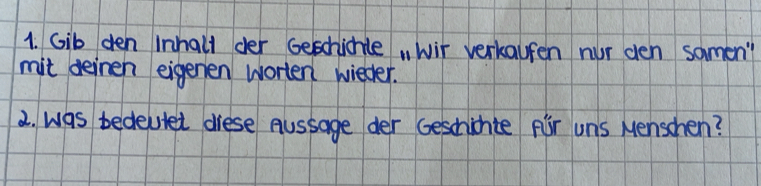 1. Gib den Inhalt der Geschichte „Wir verkaufen nur den Samen"
mit deinen eigenen Worten wieder.
2. Was bedeutet diese Aussage der Geschichte für uns Menschen?